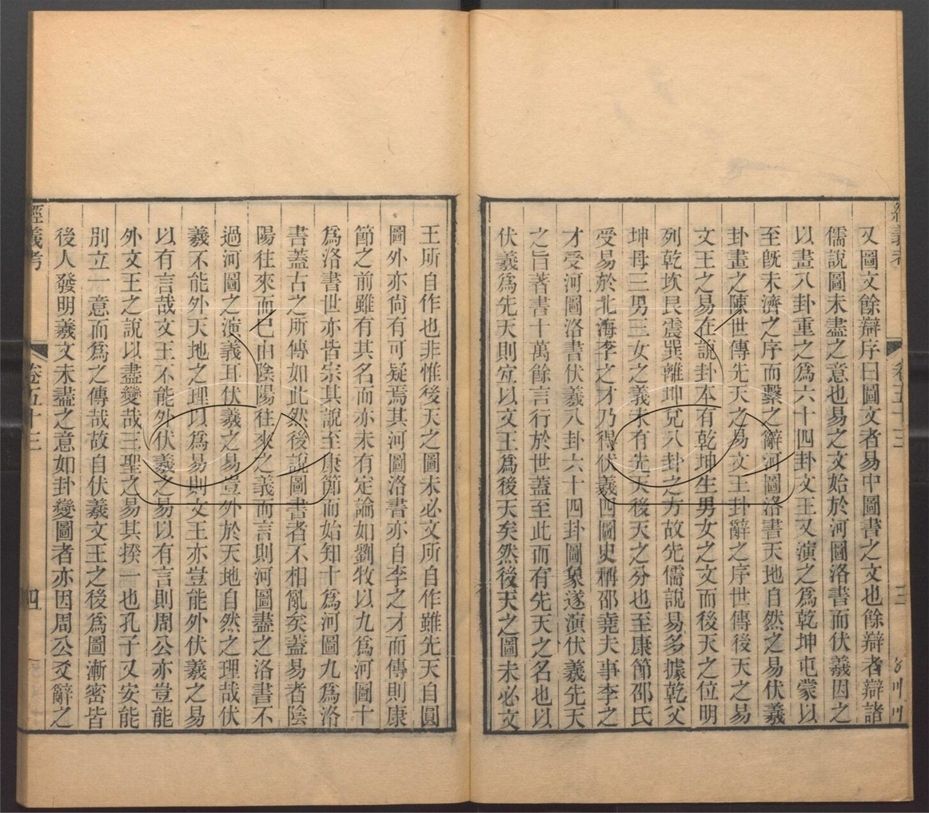 又圖文餘辯序曰圖文者易中圖書之文也餘辯者辯諸
儒說圖未盡之意也易之文始於河圖洛書而伏羲因之
以畫八卦重之為六十四卦文王又演之為乾坤屯蒙以
至旣未濟之序而繫之辭河圖洛書天地自然之易伏羲
卦畫之陳世傳先天之易文王卦辭之序世傳後天之易
文王之易在說卦本有乾坤生男女之文而後天之位明
列乾坎艮震巽離坤兌八卦之方故先儒說易多據乾父
坤母三男三女之義未有先天後天之分也至康節邵氏
受易於北海李之才乃得伏羲四圖史稱邵堯夫事李之
才受河圖洛書伏羲八卦六十四卦圖象遂演伏羲先天
之旨著書十萬餘言行於世蓋至此而有先天之名也以
伏羲為先天則宜以文王為後天矣然後天之圖未必文
三
王所自作也非惟後天之圖未必文所自作雖先天自圓
圖外亦尙有可疑焉其河圖洛書亦自李之才而傳則康
節之前雖有其名而亦未有定論如劉牧以九為河圖十
為洛書世亦皆宗其說至康節而始知十為河圖九為洛
書蓋古之所傳如此然後說圖書者不相亂矣蓋易者陰
陽往來而已由陰陽往來之義而言則河圖盡之洛書不
過河圖之演義耳伏羲之易豈外於天地自然之理哉伏
羲不能外天地之理以為易則文王亦豈能外伏羲之易
以有言哉文王不能外伏羲之易以有言則周公亦豈能
外文王之說以盡變哉三聖之易其揆一也孔子又安能
別立一意而為之傳哉故自伏羲文王之後為圖漸密皆
後人發明羲文未盡之意如卦變圖者亦因周公爻辭之
經義考
卷五十三
四